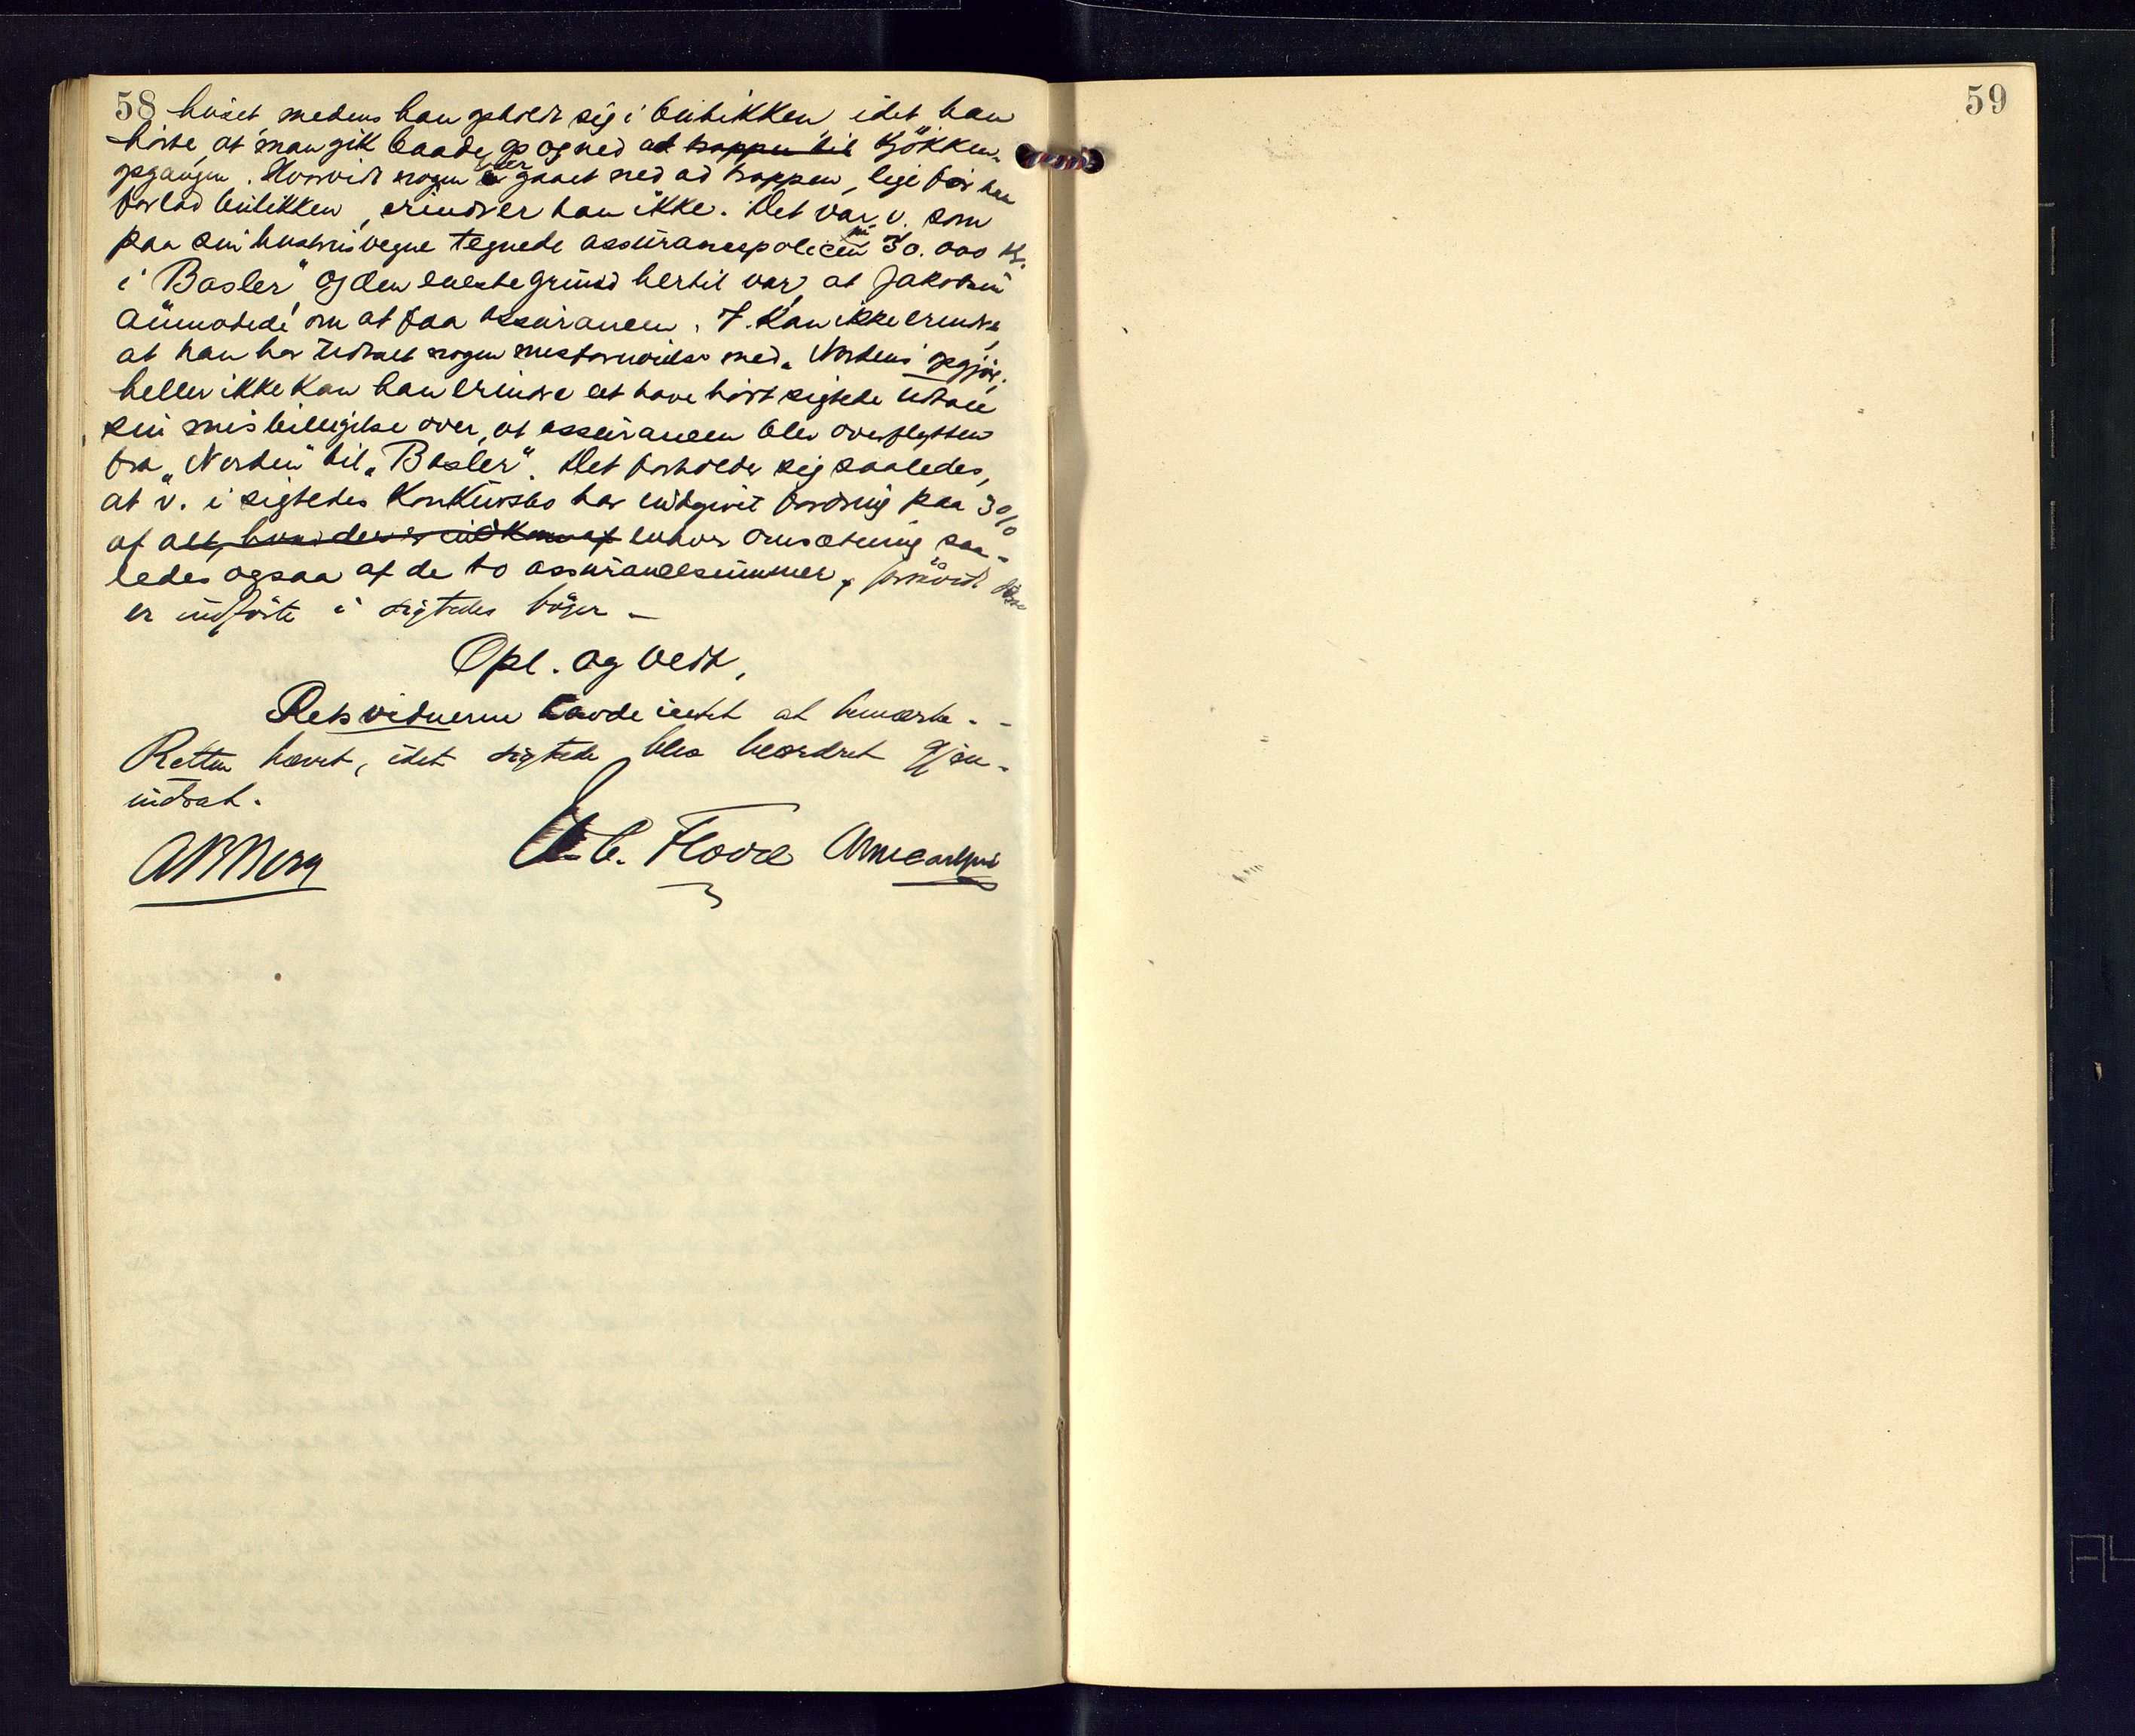 58 huset medens han opholdt sig i butikken idet han
hörte, at man gik baade op og ned ad trappen til Kjökken-
opgangen. Hvorvidt nogen er gaaet ned ad trappen, lige för han
forlod butikken, erindrer han ikke. Det var v. som
paa sin hustrus vegne tegnede assurancepolicen pr 30.000 Kr.
i "Basler" og den eneste grund hertil var, at Jakobsen
anmodede om at faa assurancen. V. Kan ikke erindre,
at han har udtalt nogen misfornöielse med "Nordens" opgjör;
heller ikke kan han erindre at have hört sigtede udtale
sin misbilligelse over, at assurancen blev overflyttet
fra "Norden" til "Basler". Det forholder sig saaledes,
at v. i sigtedes Konkursbo har indgivet fordring paa 3%
af alt, hvad der er indkommet enhver omsætning saa-
ledes ogsaa af de to assurancesummer, forsaavidt disse
er indförte i sigtedes böger -
Opl. og vedt.
Retsvidnerne havde intet at bemærke. -
Retten hævet, idet sigtede blev beordret gjen-
indsat.
E. C. Flovre
59